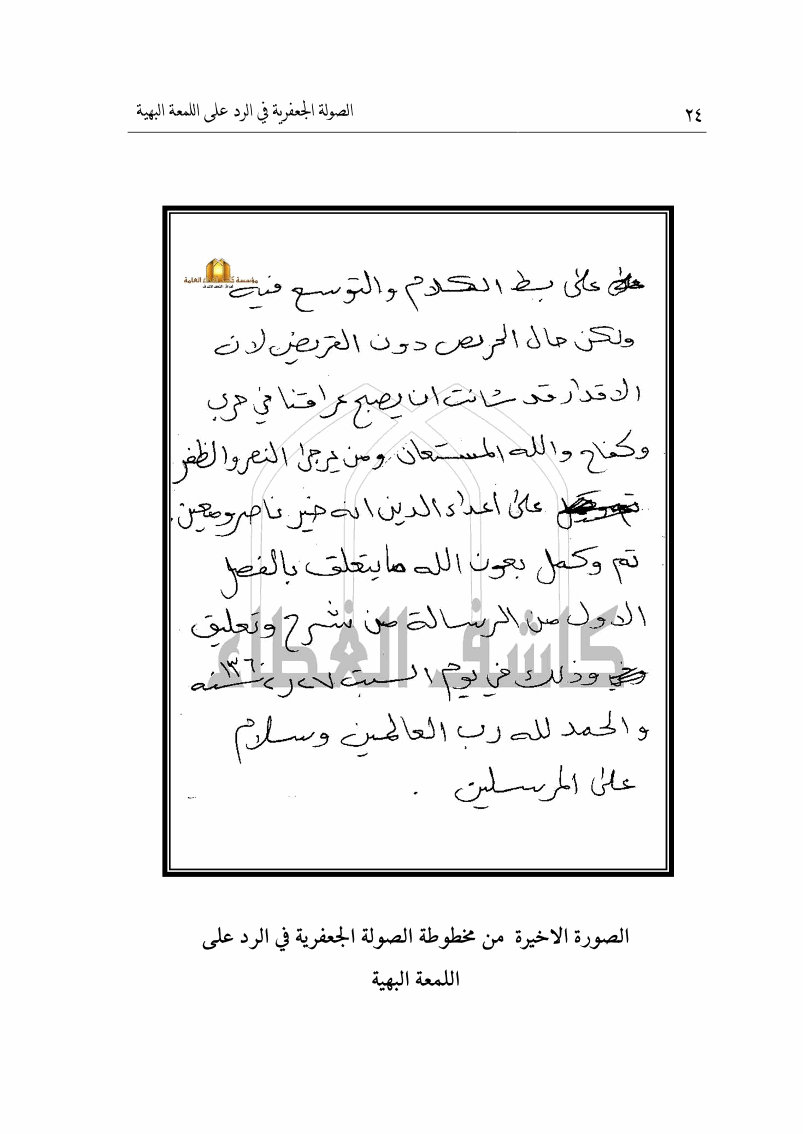 ٢٤ الصولة الجعفرية في الرد على اللمعة البهية
مؤسسة كاشف الغطاء العامة
على بسط الكلام والتوسع فيه
ولكن حال الحريص دون القريض لان
الاقدار قد شائت ان يصبح عراقنا في حرب
وكفاح والله المستعان ومن يرجى النصر والظفر
على أعداء الدين انه خير ناصر ومعين.
تم وكمل بعون الله ما يتعلق بالفصل
الاول من الرسالة من شرح وتعليق
وذلك في يوم السبت سنة ١٣٦٠
والحمد لله رب العالمين وسلام
على المرسلين .
كاشف الغطاء
الصورة الاخيرة من مخطوطة الصولة الجعفرية في الرد على
اللمعة البهية